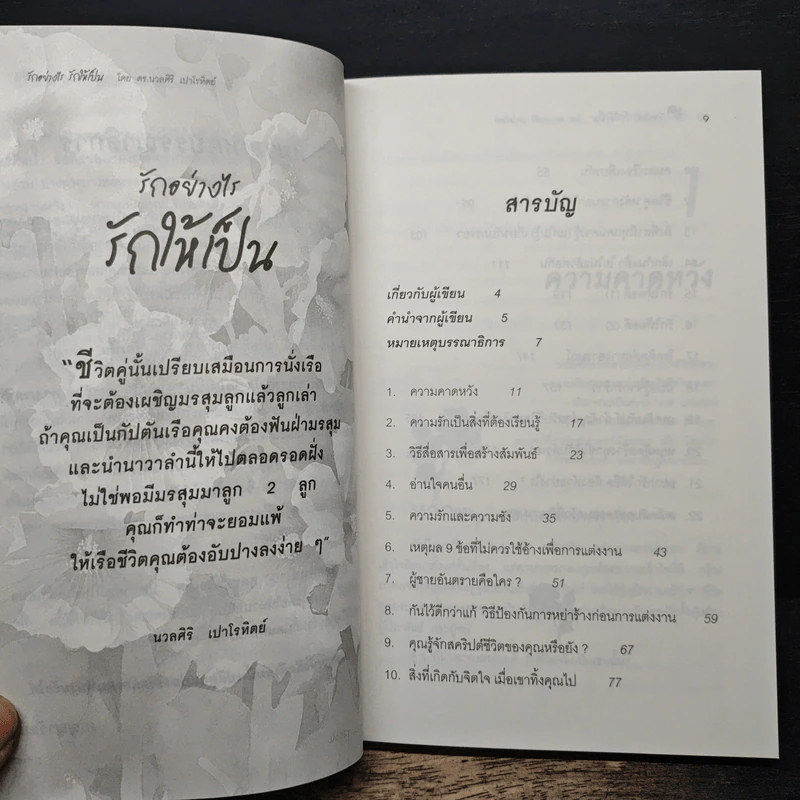 รักอย่างไร รักให้เป็น โดย ดร.นวลศิริ เปาโรหิตย์
รักอย่างไร
รักให้เป็น
"ชีวิตคู่นั้นเปรียบเสมือนการนั่งเรือ
ที่จะต้องเผชิญมรสุมลูกแล้วลูกเล่า
ถ้าคุณเป็นกัปตันเรือคุณคงต้องฟันฝ่ามรสุม
และนำนาวาลำนี้ให้ไปตลอดรอดฝั่ง
ไม่ใช่พอมีมรสุมมาลูก 2 ลูก
คุณก็ทำท่าจะยอมแพ้
ให้เรือชีวิตคุณต้องอับปางลงง่าย ๆ"
นวลศิริ เปาโรหิตย์
๑
สารบัญ
เกี่ยวกับผู้เขียน 4
คำนำจากผู้เขียน 5
หมายเหตุบรรณาธิการ 7
1. ความคาดหวัง 11
2. ความรักเป็นสิ่งที่ต้องเรียนรู้ 17
3. วิธีสื่อสารเพื่อสร้างสัมพันธ์ 23
4. อ่านใจคนอื่น 29
5. ความรักและความชัง 35
6. เหตุผล 9 ข้อที่ไม่ควรใช้อ้างเพื่อการแต่งงาน 43
7. ผู้ชายอันตรายคือใคร ? 51
8. กันไว้ดีกว่าแก้ วิธีป้องกันการหย่าร้างก่อนการแต่งงาน 59
9. คุณรู้จักสคริปต์ชีวิตของคุณหรือยัง ? 67
10. สิ่งที่เกิดกับจิตใจ เมื่อเขาทิ้งคุณไป 77